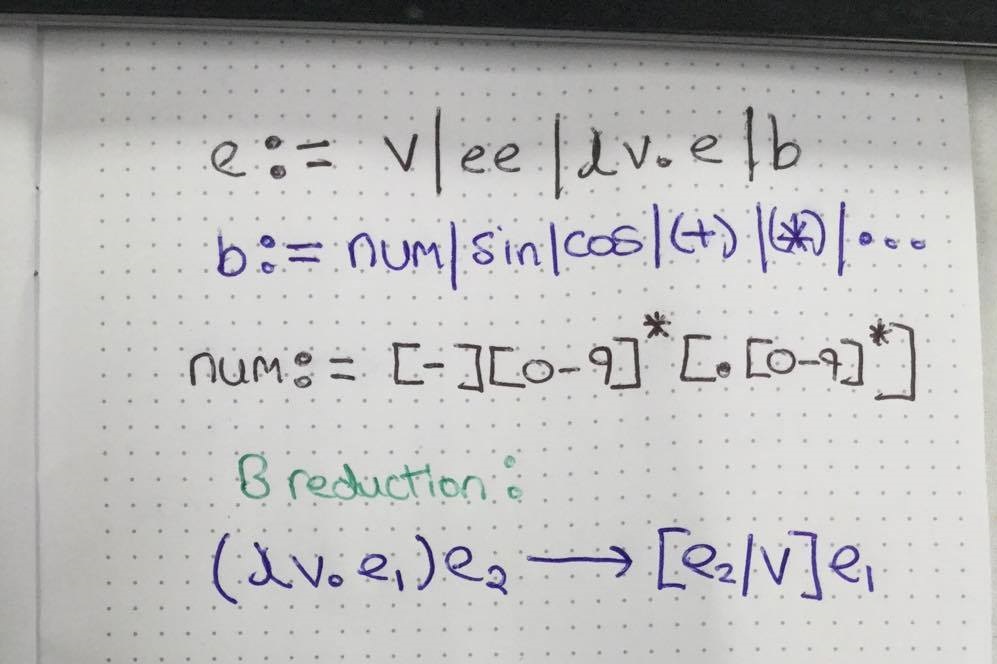 e := v | ee | λv. e | b
b := num | sin | cos | (+) | (*) | ...
num := [-][0-9]* [.[0-9]*]
β reduction:
(λv. e₁) e₂ → [e₂/v] e₁